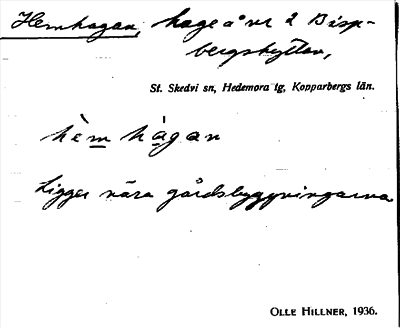 Hemhagan, hage å nr 2 Bisp-
bergshyttan,
St. Skedvi sn, Hedemora tg, Kopparbergs län.
hèm hàgan
Ligger nära gårdsbyggningarna
OLLE HILLNER, 1936.